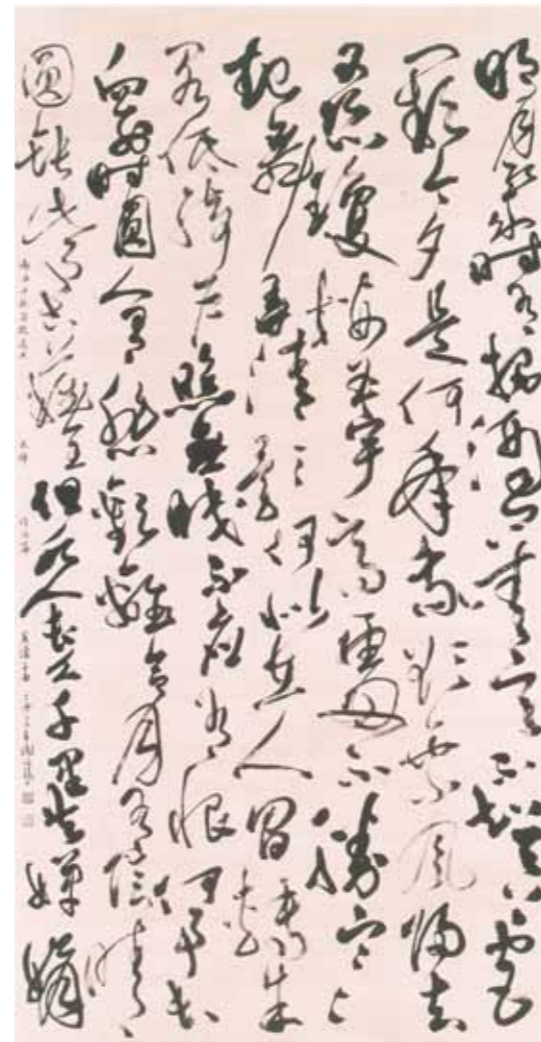 明月幾時有把酒問青天不知天上宮
闕今夕是何年我欲乘風歸去
又恐瓊樓玉宇高處不勝寒
起舞弄清影何似在人間轉朱
閣低綺戶照無眠不應有恨何事長
向別時圓人有悲歡離合月有陰晴
圓缺此事古難全但願人長久千里共嬋娟